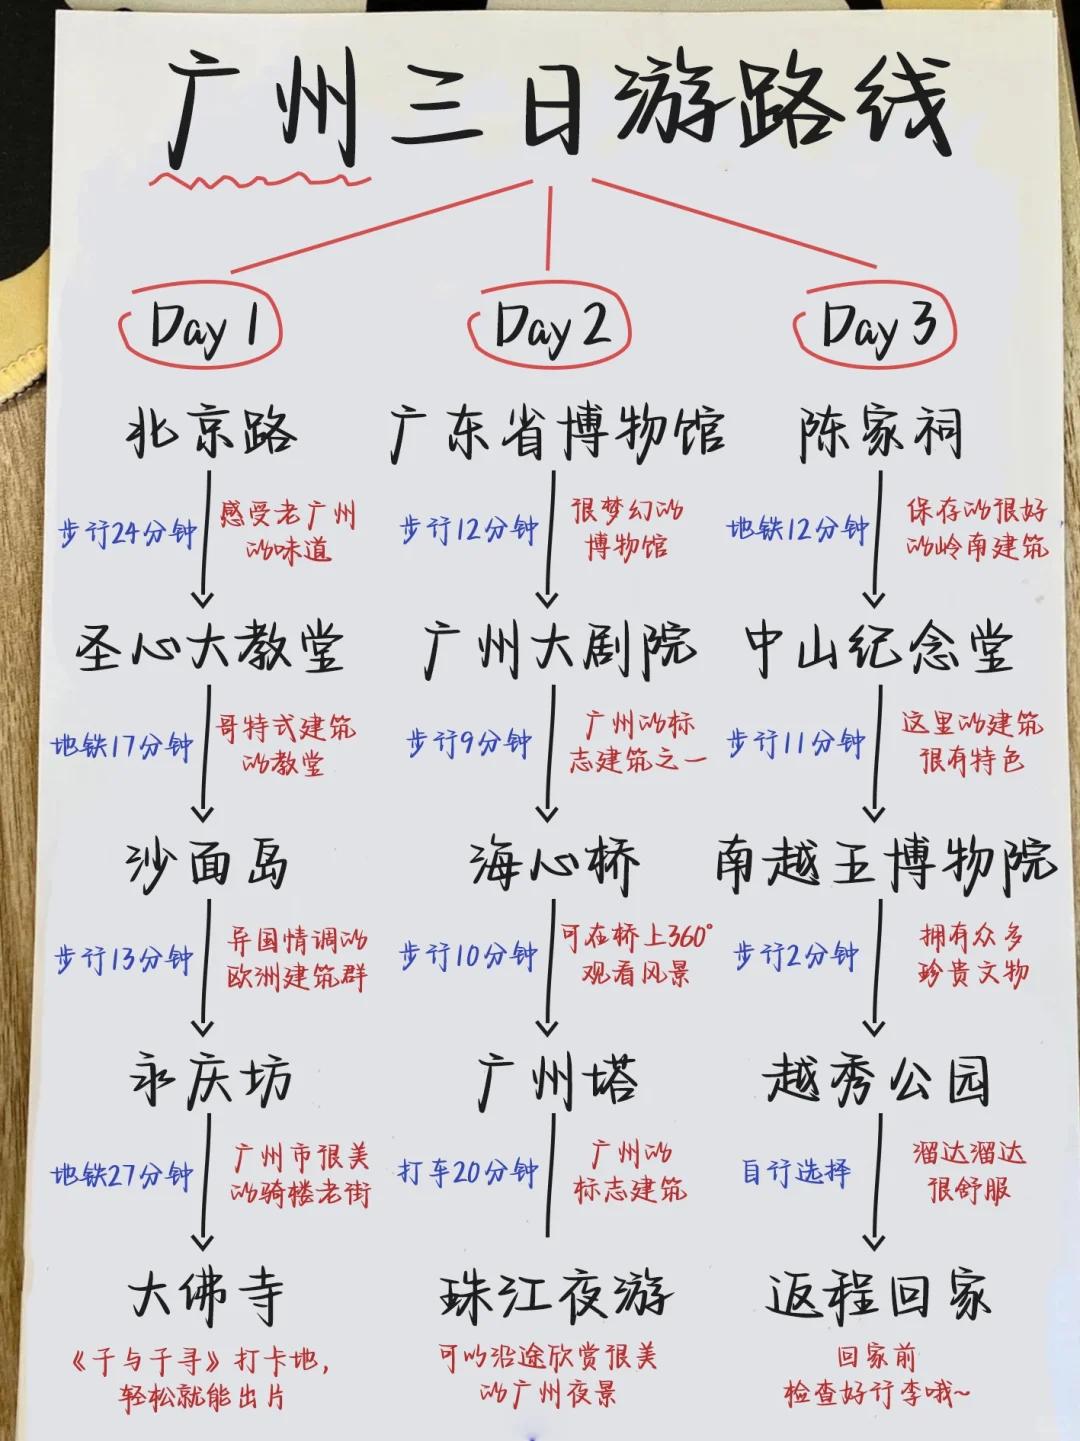 广州三日游路线
Day 1
北京路
步行24分钟
感受老广州
的味道
圣心大教堂
地铁17分钟
哥特式建筑
的教堂
沙面岛
步行13分钟
异国情调的
欧洲建筑群
永庆坊
地铁27分钟
广州市很美
的骑楼老街
大佛寺
《千与千寻》打卡地,
轻松就能出片
Day 2
广东省博物馆
步行12分钟
很梦幻的
博物馆
广州大剧院
步行9分钟
广州的标
志建筑之一
海心桥
步行10分钟
可在桥上360°
观看风景
广州塔
打车20分钟
广州的
标志建筑
珠江夜游
可以沿途欣赏很美
的广州夜景
Day 3
陈家祠
地铁12分钟
保存的很好
的岭南建筑
中山纪念堂
步行11分钟
这里的建筑
很有特色
南越王博物院
步行2分钟
拥有众多
珍贵文物
越秀公园
自行选择
溜达溜达
很舒服
返程回家
回家前
检查好行李哦~